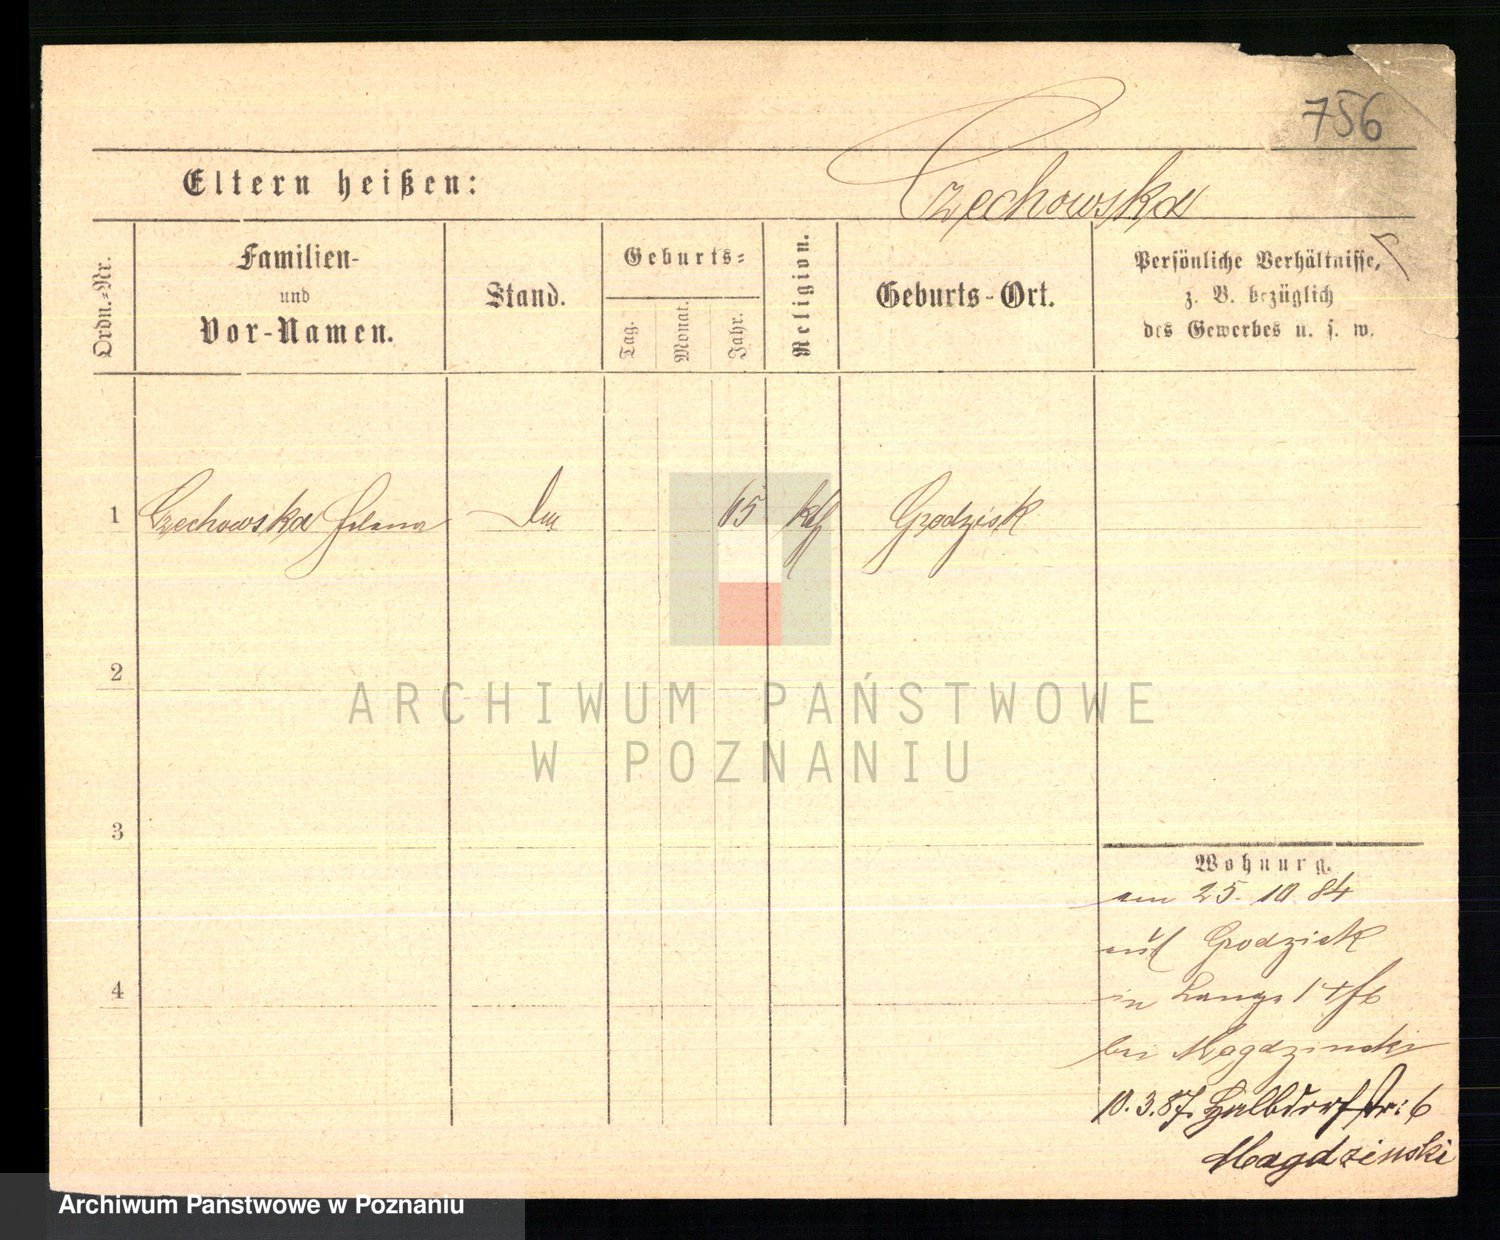 756
Eltern heißen:
Czechowska
Ordn.-Nr.
Familien-
und
Vor-Namen.
Stand.
Geburts-
Tag.
Monat.
Jahr.
Religion.
Geburts-Ort.
Persönliche Verhältnisse,
z. B. bezüglich
des Gewerbes u. s. w.
1 Czechowska Helena 65 kath Grodzisk
2
3
4
ARCHIWUM PAŃSTWOWE
W POZNANIU
Wohnung.
am 25. 10. 84
aus Grodzisk
in Lange
bei Magdzinski
10.3.87. Halbdorfstr: 6
Magdzinski
Archiwum Państwowe w Poznaniu